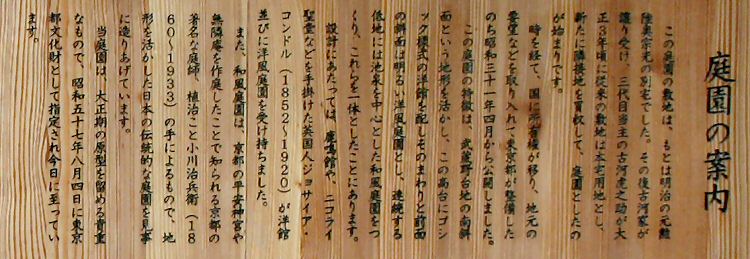 庭園の案内
この庭園の敷地は、もとは明治の元勲
陸奥宗光の別宅でした。その後古河家が
譲り受け、三代目当主の古河虎之助が大
正3年頃に従来の敷地は本宅用地とし、
新たに隣接地を買収して、庭園としたの
が始まりです。
時を経て、国に所有権が移り、地元の
要望などを取り入れて東京都が整備した
のち昭和三十一年四月から公開しました。
この庭園の特徴は、武蔵野台地の南斜
面という地形を活かし、この高台にゴシ
ック様式の洋館を配しそのまわりと前面
の斜面は明るい洋風庭園とし、連続する
低地には池泉を中心とした和風庭園をつ
くり、これらを一体としたことにあります。
設計にあたっては、鹿鳴館や、ニコライ
聖堂などを手掛けた英国人ジョサイア・
コンドル（1852〜1920）が洋館
並びに洋風庭園を受け持ちました。
また、和風庭園は、京都の平安神宮や
無隣庵を作庭したことで知られる京都の
著名な庭師、植治こと小川治兵衛（18
60〜1933）の手によるもので、地
形を活かした日本の伝統的な庭園を見事
に造りあげています。
当庭園は、大正期の原型を留める貴重
なもので、昭和五十七年八月四日に東京
都文化財として指定され今日に至ってい
ます。